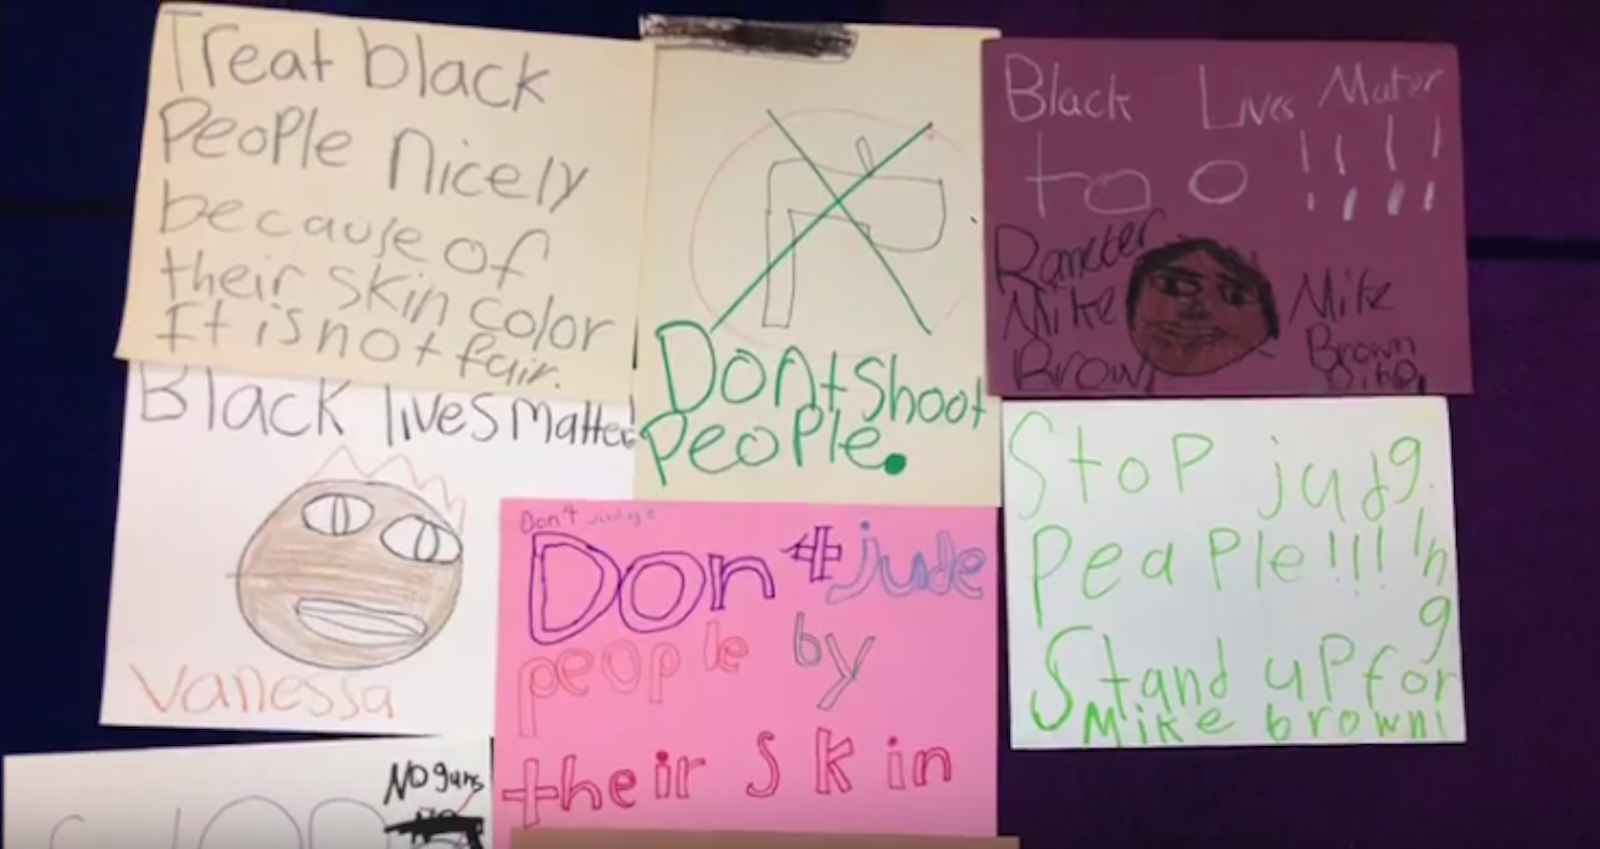 Treat black
People nicely
because of
their skin color
It is not fair.
Dont shoot
People.
Black Lives Mater
too !!!!
Ramcter
Mike
Brown
Mike
Brown
Black lives matter!
Vanessa
Don't judge
Don't jude
people by
their skin
Stop judg
peaple!!! in
g
Stand up for
Mike brown!
No guns
STOP